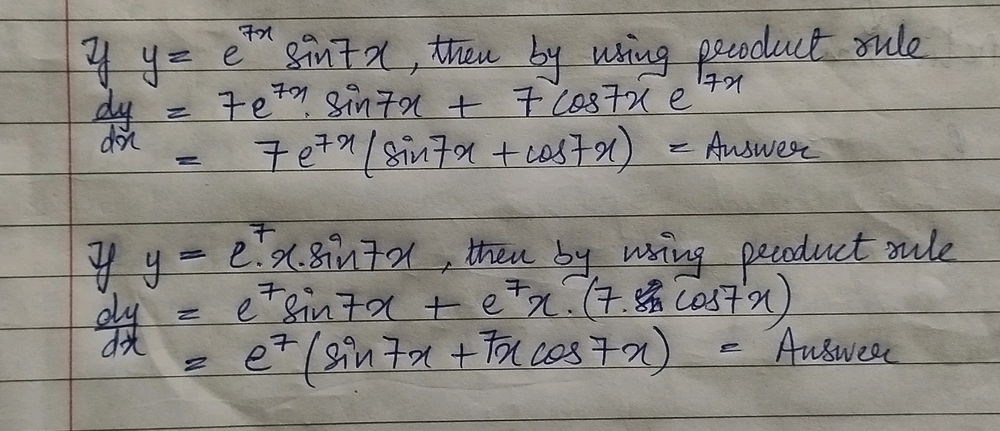 If y = e^7x sin7x, then by using product rule
dy/dx = 7e^7x. sin7x + 7 cos7x e^7x
= 7e^7x (sin7x + cos7x) = Answer
If y = e^7.x.sin7x, then by using product rule
dy/dx = e^7 sin7x + e^7 x. (7. cos7x)
= e^7 (sin7x + 7x cos7x) = Answer